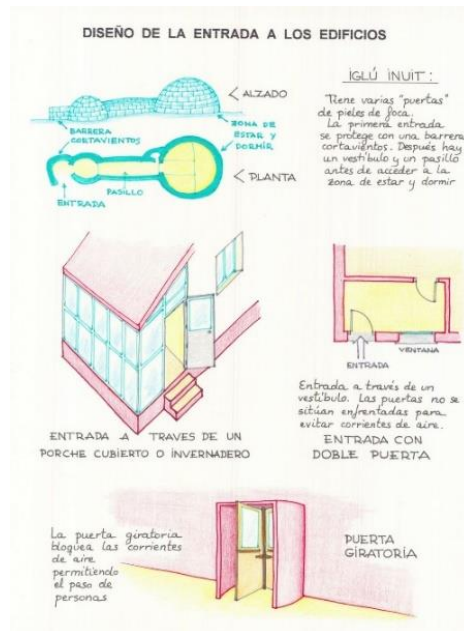 DISEÑO DE LA ENTRADA A LOS EDIFICIOS
ALZADO
BARRERA
CORTAVIENTOS
ZONA DE
ESTAR Y
DORMIR
PASILLO
PLANTA
ENTRADA
IGLÚ INUIT:
Tiene varias "puertas"
de pieles de foca.
La primera entrada
se protege con una barrera
cortavientos. Después hay
un vestíbulo y un pasillo
antes de acceder a la
zona de estar y dormir
ENTRADA A TRAVES DE UN
PORCHE CUBIERTO O INVERNADERO
VENTANA
ENTRADA
Entrada a través de un
vestíbulo. Las puertas no se
sitúan enfrentadas para
evitar corrientes de aire.
ENTRADA CON
DOBLE PUERTA
La puerta giratoria
bloquea las corrientes
de aire
permitiendo
el paso de
personas
PUERTA
GIRATORIA